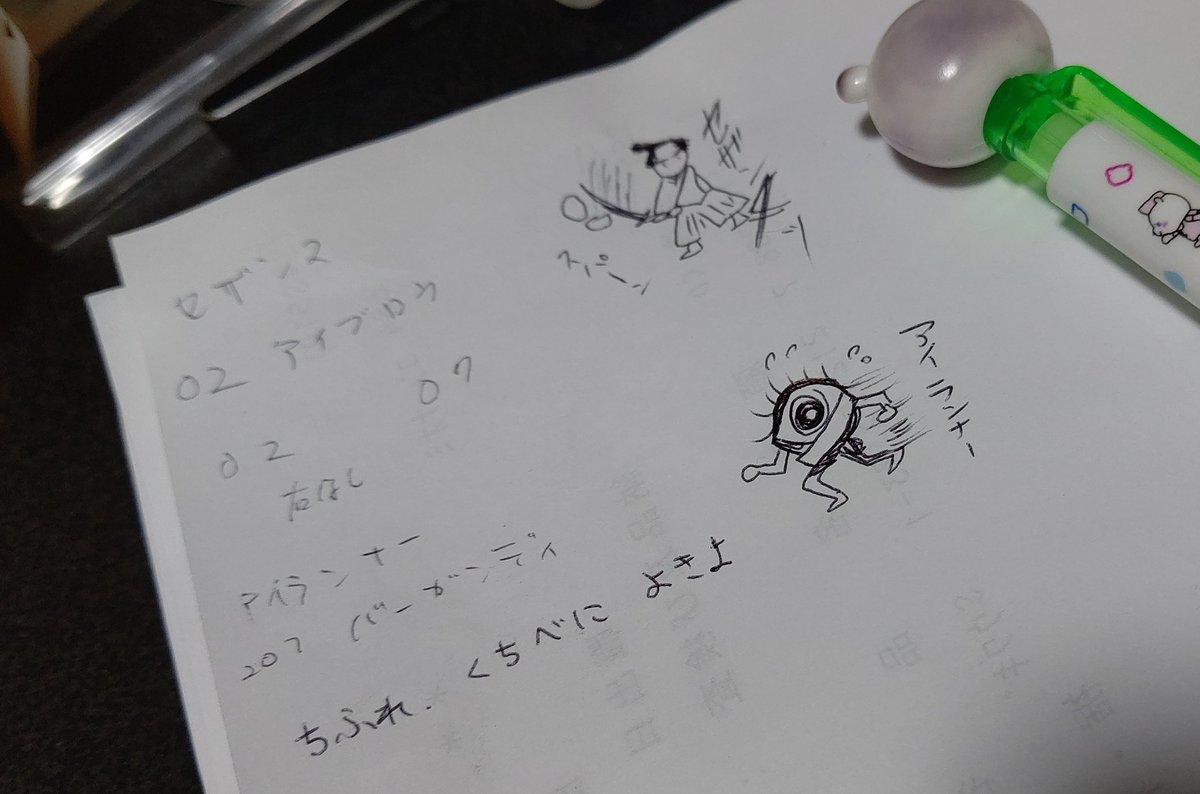 セザンヌ
02 アイブロウ
07
02
アイランナー
207 バーガンディ
ちふれ.
くちべに よきよ
スパーン
アイランナー